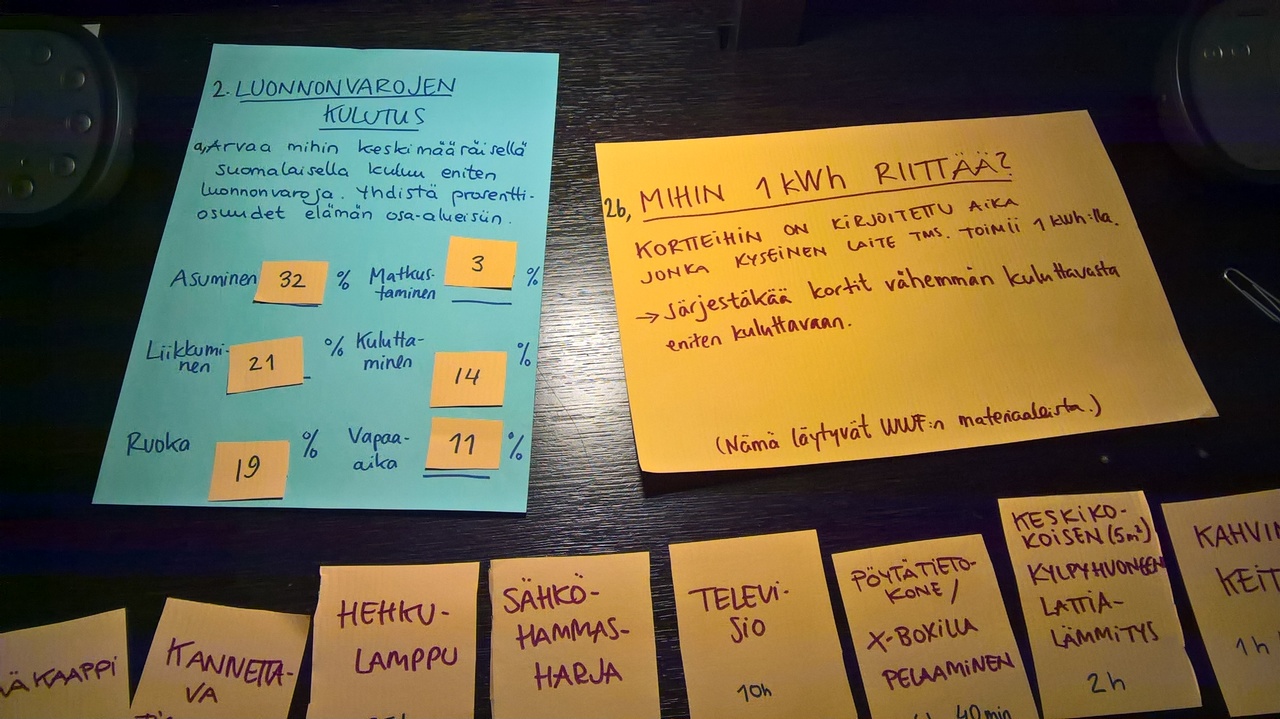 2. LUONNONVAROJEN
KULUTUS
a, Arvaa mihin keskimääräisellä
suomalaisella kuluu eniten
luonnonvaroja. Yhdistä prosentti-
osuudet elämän osa-alueisiin.
Asuminen 32 %
Matkus-
taminen 3 %
Liikkumi-
nen 21 %
Kulutta-
minen 14 %
Ruoka 19 %
Vapaa-
aika 11 %
2b, MIHIN 1 kWh RIITTÄÄ?
KORTTEIHIN ON KIRJOITETTU AIKA
JONKA KYSEINEN LAITE TMS. TOIMII 1 kWh:lla.
→ Järjestäkää kortit vähemmän kuluttavasta
eniten kuluttavaan.
(Nämä löytyvät WWF:n materiaaleista.)
ÄKAAPPI
KANNETTA-
VA
HEHKU-
LAMPPU
SÄHKÖ-
HAMMAS-
HARJA
TELEVI-
SIO
10h
PÖYTÄTIETO-
KONE /
X-BOXILLA
PELAAMINEN
40min
KESKIKO-
KOISEN (5m²)
KYLPYHUONEEN
LATTIA-
LÄMMITYS
2h
KAHVIN
KEIT
1h